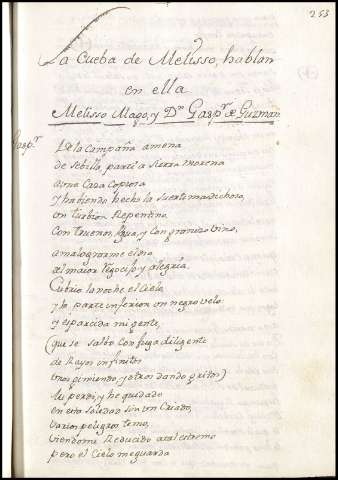 253
La Cueba de Melisso, hablan
en ella
Melisso Mago, y Dn Gaspr de Guzman
Gaspr
De la Campaña amena
de Sebilla, partí a Sierra morena
a una Caza Copiosa
y habiendo hecho la suerte mas dichosa,
un turbion Repentino,
Con truenos, Agua, y con granizo vino,
a malograrme el dia
del maior Regocijo y alegria.
Cubrio la noche el Cielo
y la parte inferior un negro velo
y esparcida mi gente,
(que se salbó con fuga diligente
de Rayos infinitos
unos gimiendo, y otros dando gritos)
los perdi, y he quedado
en esta soledad sin un Criado,
varios peligros temo,
viendome Reducido a tal estremo
pero el Cielo me guarda